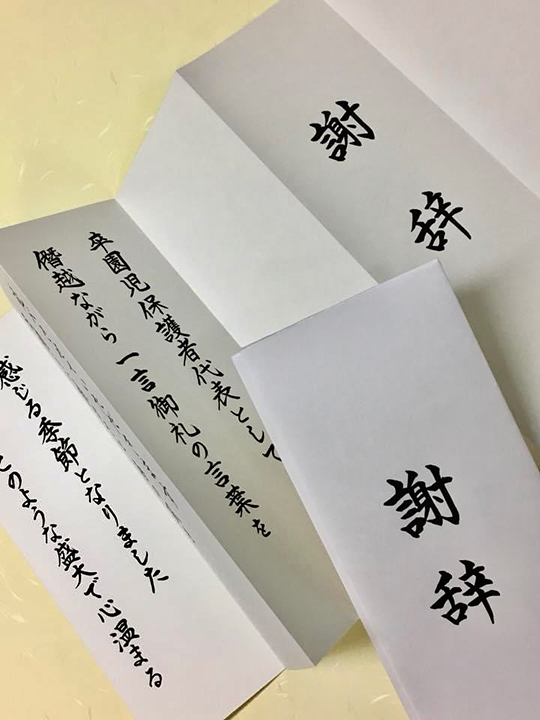 謝辞
卒園児保護者代表として
僭越ながら一言御礼の言葉を
感じる季節となりました
このような盛大で心温まる
謝辞